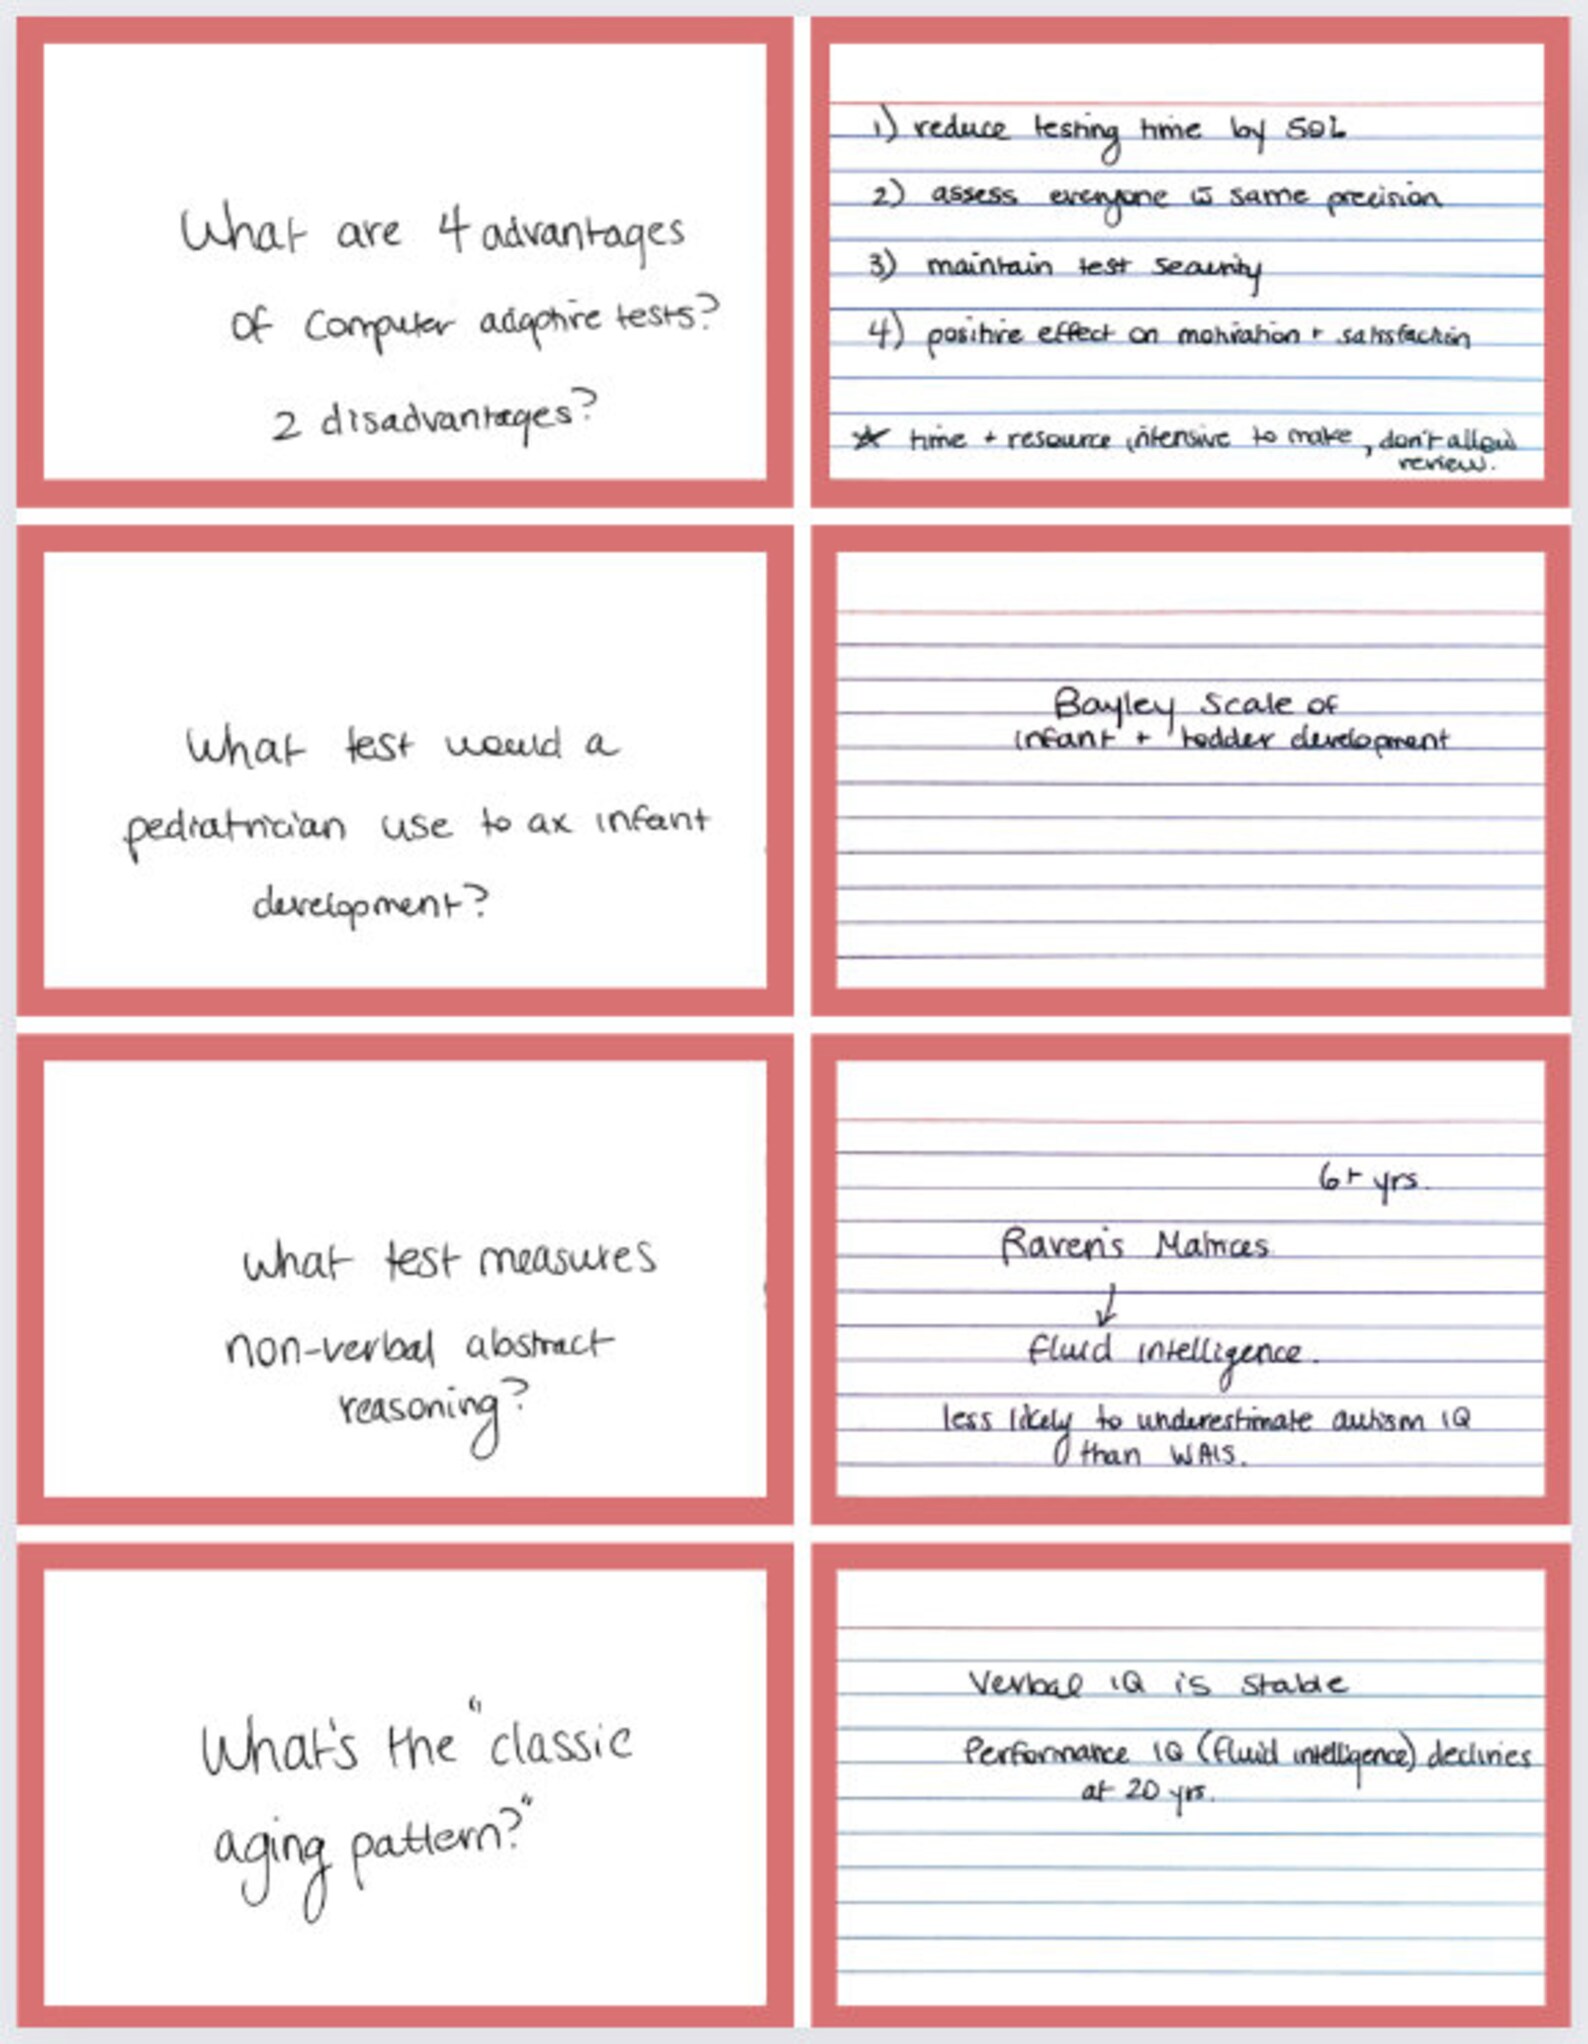 What are 4 advantages
of computer adaptive tests?
2 disadvantages?
1) reduce testing time by 50%
2) assess everyone c̄ same precision
3) maintain test security
4) positive effect on motivation + satisfaction
☆ time + resource intensive to make, don't allow
review.
What test would a
pediatrician use to ax infant
development?
Bayley Scale of
infant + toddler development
What test measures
non-verbal abstract
reasoning?
6+ yrs.
Raven's Matrices
↓
fluid intelligence.
less likely to underestimate autism IQ
than WAIS.
What's the "classic
aging pattern?"
Verbal IQ is stable
Performance IQ (fluid intelligence) declines
at 20 yrs.